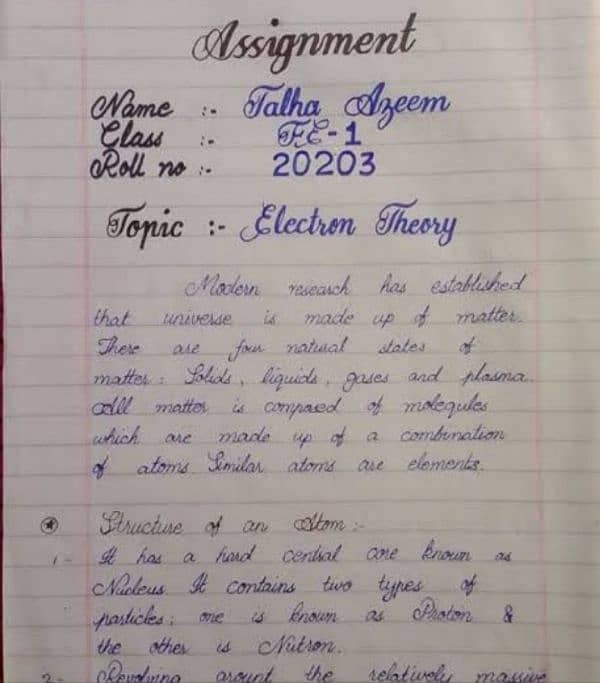 Assignment
Name :- Talha Azeem
Class :- FE-1
Roll no :- 20203
Topic :- Electron Theory
Modern research has established
that universe is made up of matter.
There are four natural states of
matter: Solids, liquids, gases and plasma.
All matter is composed of molequles
which are made up of a combination
of atoms Similar atoms are elements.
Structure of an Atom :-
1- It has a hard central core known as
Nucleus. It contains two types of
particles; one is known as Proton &
the other is Nutron.
2- Revolving arount the relatively massive